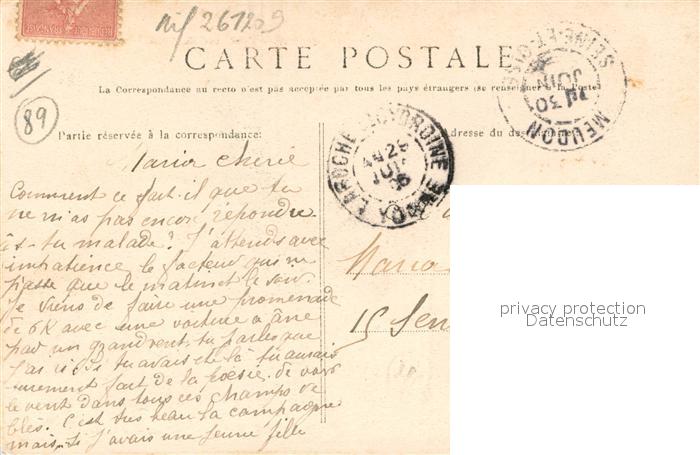 nif 261209
CARTE POSTALE
La Correspondance au recto n'est pas acceptée par tous les pays étrangers (se renseigner à la Poste)
89
Partie réservée à la correspondance:
Adresse du destinataire:
LAROCHE YONNE
MEUDON SEINE-ET-OISE
30 JUIN
Maria chérie
Comment ce fait-il que tu
ne m'as pas encore répondre
âs-tu malade? J'attends avec
impatience le facteur qui ne
passe que le matin et le soir.
Je viens de faire une promenade
de 6K avec une voiture a âne
par un grand vent, tu parles que
j'ai si tu avais été là tu aurais
surement fait de la poésie. de voir
le vent dans tous ces champs de
blés. C'est très beau la campagne
mais si j'avais une jeune fille
Maria
15
privacy protection
Datenschutz